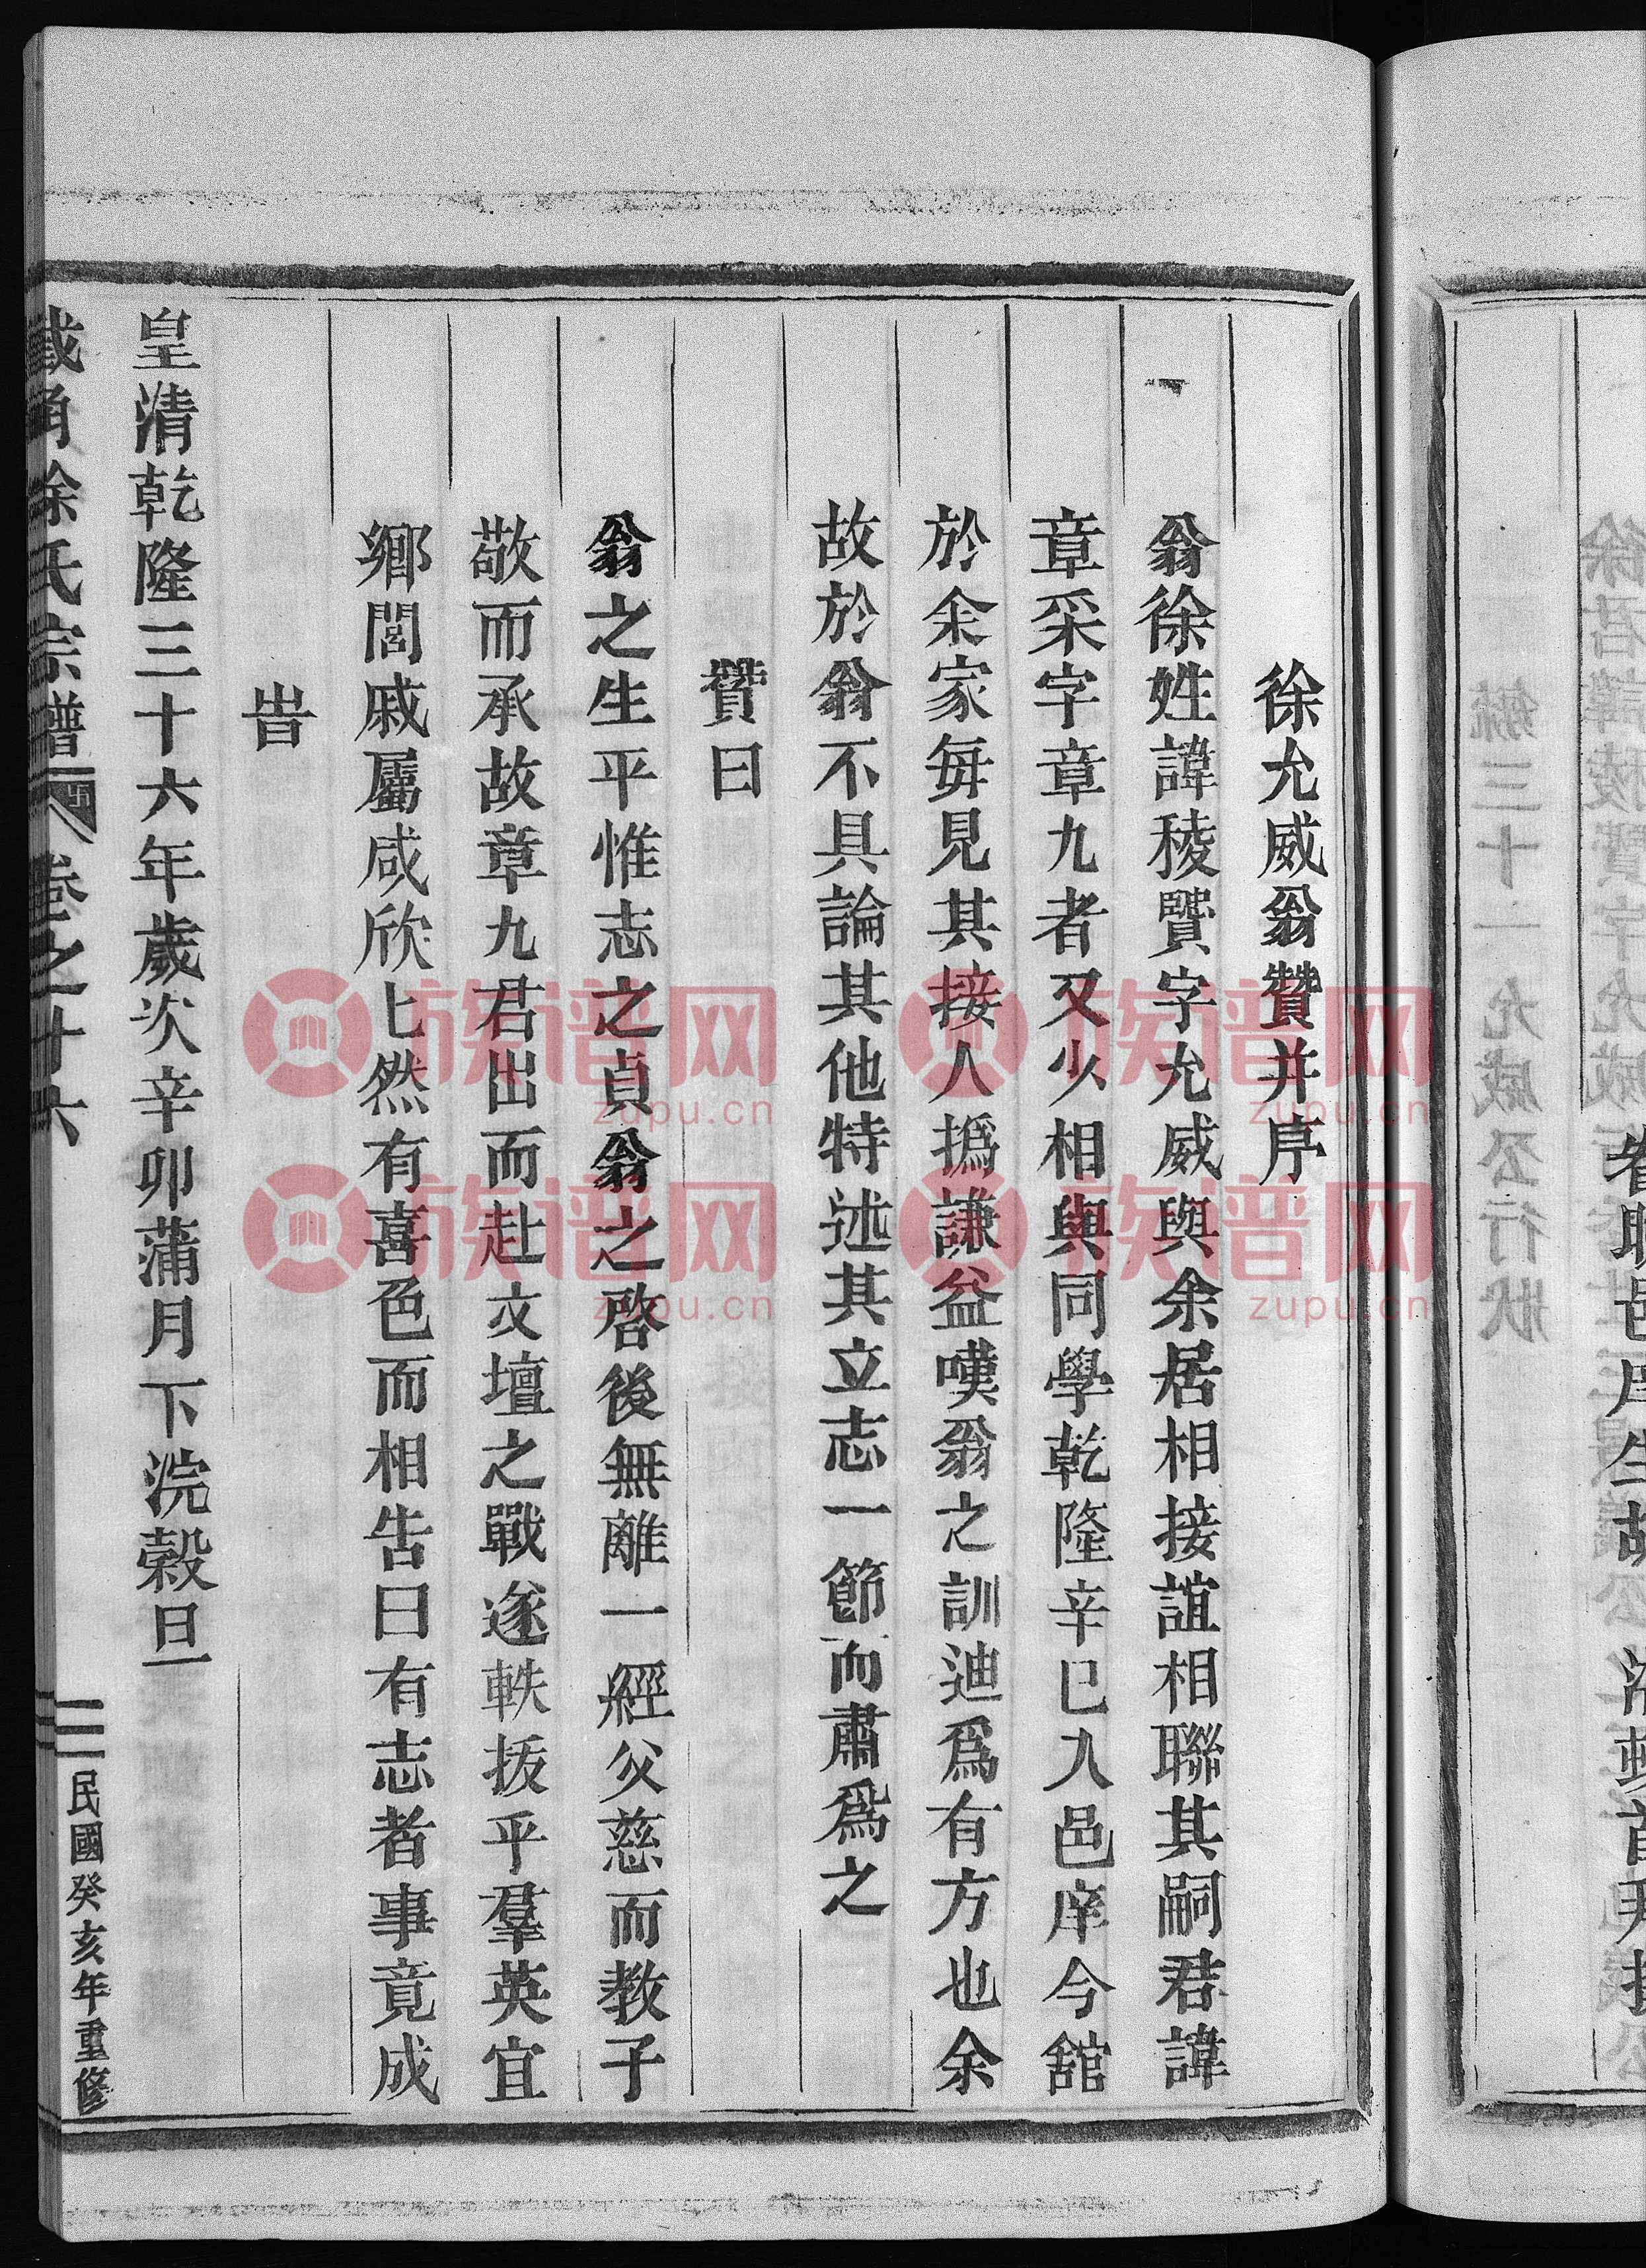 徐允威翁贊并序
翁徐姓諱稜贒字允威與余居相接誼相聯其嗣君諱
章采字章九者又少相與同學乾隆辛巳入邑庠今舘
於余家毎見其接人撝謙益嘆翁之訓迪爲有方也余
故於翁不具論其他特述其立志一節而肅爲之
贊曰
翁之生平惟志之貞翁之啓後無離一經父慈而教子
敬而承故章九君出而赴文壇之戰遂軼拔乎羣英宜
鄉閭戚屬咸欣匕然有喜色而相告曰有志者事竟成
旹
皇清乾隆三十六年歲次辛卯蒲月下浣穀旦
徐氏宗譜 卷之十六 二 民國癸亥年重修
族谱网
zupu.cn
族谱网
zupu.cn
族谱网
zupu.cn
族谱网
zupu.cn